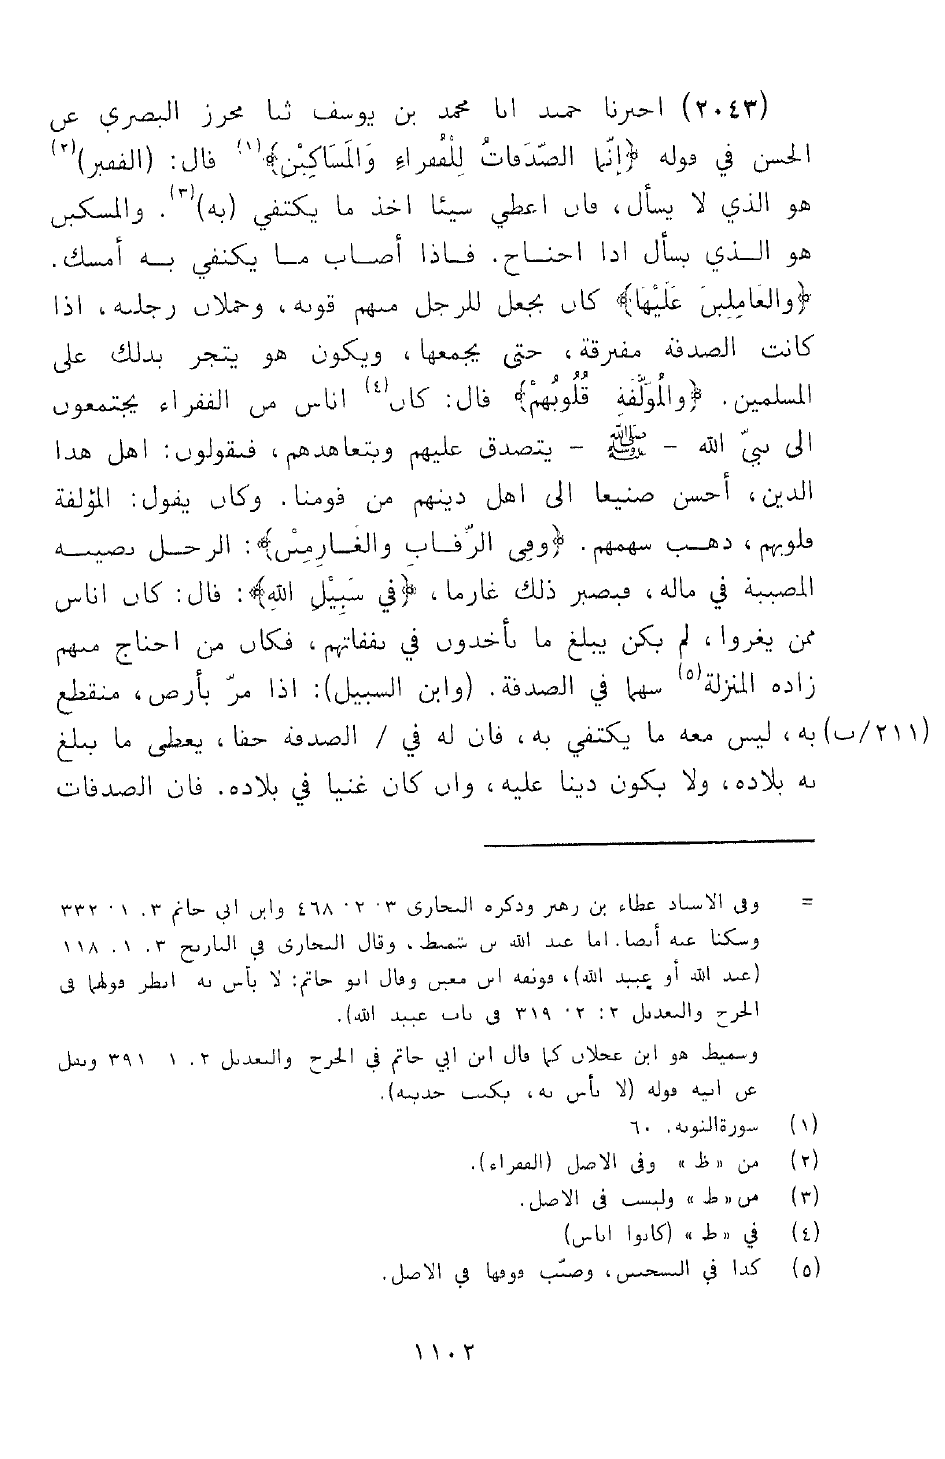 (٢٠٤٣) اخبرنا حميد انا محمد بن يوسف ثنا محرز البصري عن
الحسن في قوله ﴿إنّما الصّدَقاتُ لِلْفُقراءِ وَالمَسَاكِيْن﴾(١) قال: (الفقير)(٢)
هو الذي لا يسأل، فان اعطي شيئا اخذ ما يكتفي (به)(٣). والمسكين
هو الذي يسأل اذا احتاج. فاذا أصاب ما يكتفي به أمسك.
﴿والعَامِلِينَ عَلَيْها﴾ كان يجعل للرجل منهم قوته، وحملان رجليه، اذا
كانت الصدقة مفترقة، حتى يجمعها، ويكون هو يتجر بذلك على
المسلمين. ﴿والمُؤَلَّفَةِ قُلُوبُهُمْ﴾ قال: كان(٤) اناس من الفقراء يجتمعون
الى نبيّ الله - ﷺ - يتصدق عليهم ويتعاهدهم، فيقولون: اهل هذا
الدين، أحسن صنيعا الى اهل دينهم من قومنا. وكان يقول: المؤلفة
قلوبهم، ذهب سهمهم. ﴿وفِي الرِّقَاب والغَارِمِيْن﴾: الرجل تصيبه
المصيبة في ماله، فيصير ذلك غارما، ﴿في سَبِيْلِ اللهِ﴾: قال: كان اناس
ممن يغزوا، لم يكن يبلغ ما يأخذون في نفقاتهم، فكان من احتاج منهم
زاده المنزلة(٥) سهما في الصدقة. (وابن السبيل): اذا مرّ بأرض، منقطع
(٢١١/ب) به، ليس معه ما يكتفي به، فان له في / الصدقة حقا، يعطى ما يبلغ
به بلاده، ولا يكون دينا عليه، وان كان غنيا في بلاده. فان الصدقات
= وفي الاسناد عطاء بن زهير وذكره البخاري ٣ . ٢ . ٤٦٨ وابن ابي حاتم ٣ . ١ . ٣٣٢
وسكتا عنه أيضا. اما عبد الله بن شميط، وقال البخاري في التاريخ ٣ . ١ . ١١٨
(عبد الله أو عبيد الله)، فوثقه ابن معين وقال ابو حاتم: لا بأس به انظر قولهما في
الجرح والتعديل ٢: ٢ . ٣١٩ في باب عبيد الله).
وسميط هو ابن عجلان كما قال ابن ابي حاتم في الجرح والتعديل ٢ . ١ ٣٩١ ونقل
عن ابيه قوله (لا بأس به، يكتب حديثه).
(١) سورة التوبة. ٦٠
(٢) من « ظ » وفي الاصل (الفقراء).
(٣) من « ط » وليست في الاصل.
(٤) في « ط » (كانوا اناس)
(٥) كذا في النسختين، وضبّب فوقها في الاصل.
١١٠٢